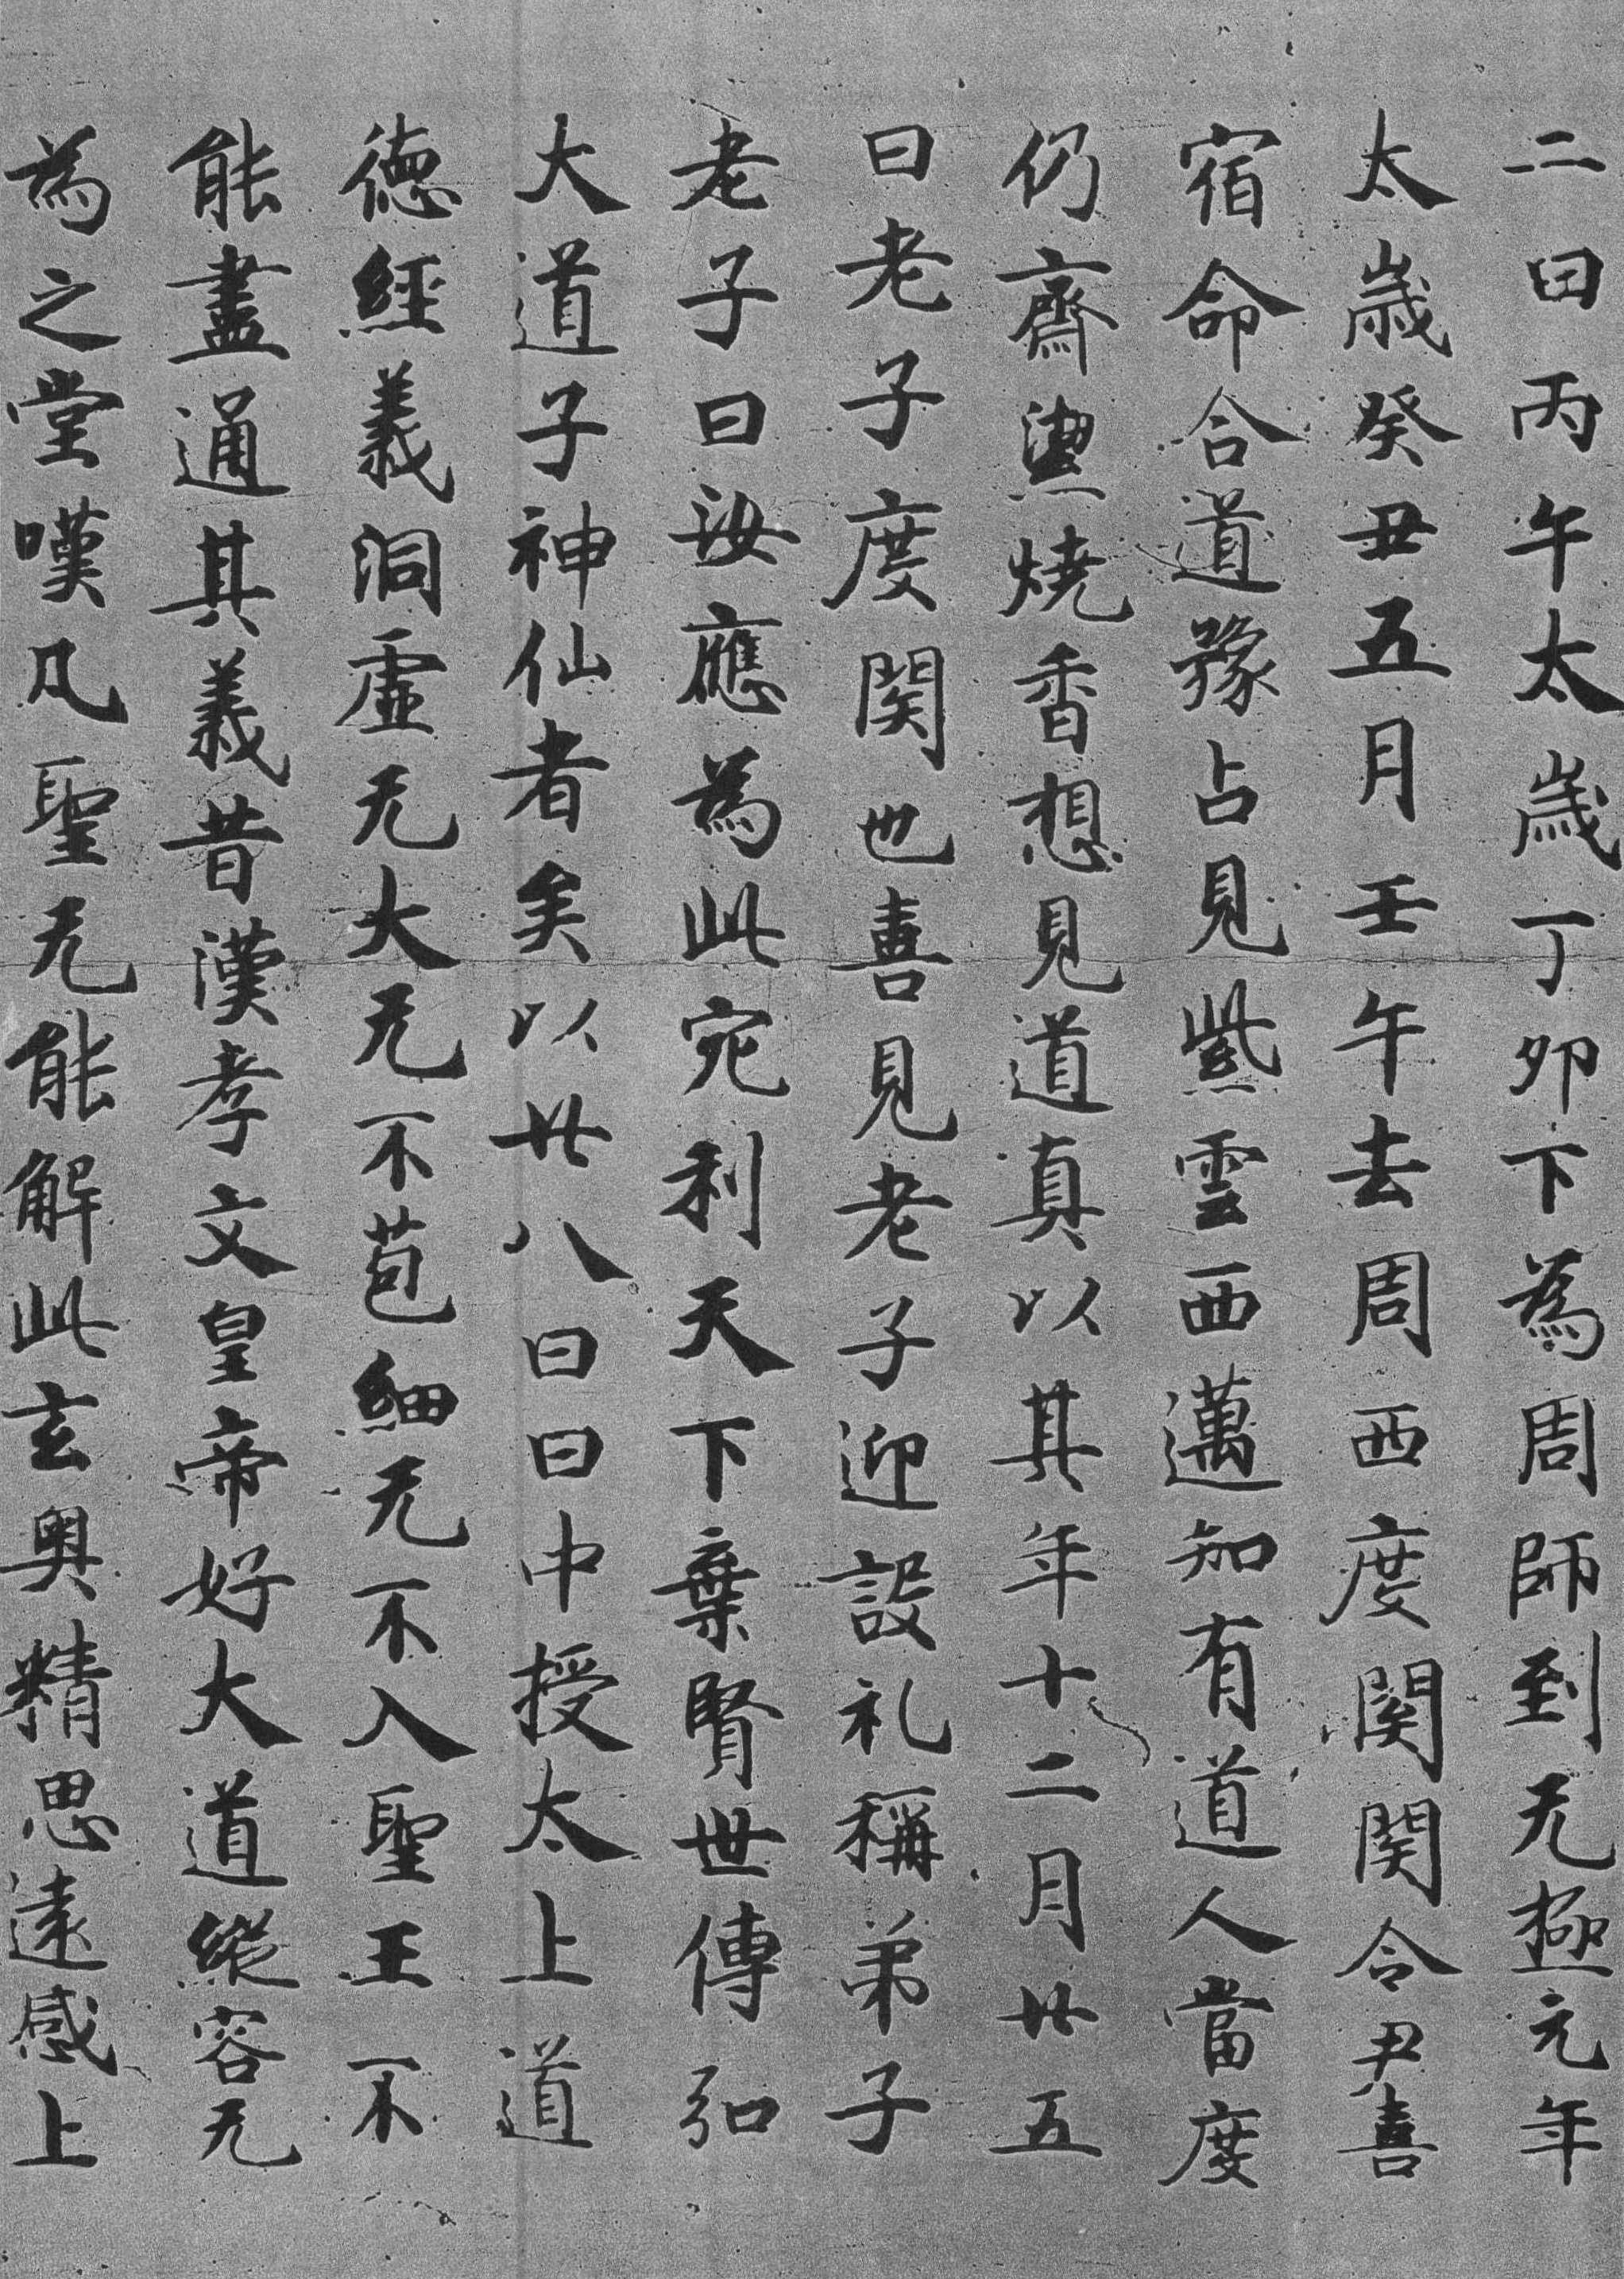 二日丙午太歲丁卯下為周師到无極元年
太歲癸丑五月壬午去周西度関関令尹喜
宿命合道豫占見紫雲西邁知有道人當度
仍齋燒香想見道真以其年十二月廿五
日老子度関也喜見老子迎設礼稱弟子
老子曰汝應為此宛利天下棄賢世傳弘
大道子神仙者矣以廿八日日中授太上道
德經義洞虛无大无不苞細无不入聖王不
能盡通其義昔漢孝文皇帝好大道縱容无
為之堂嘆凡聖无能解此玄奥精思遠感上